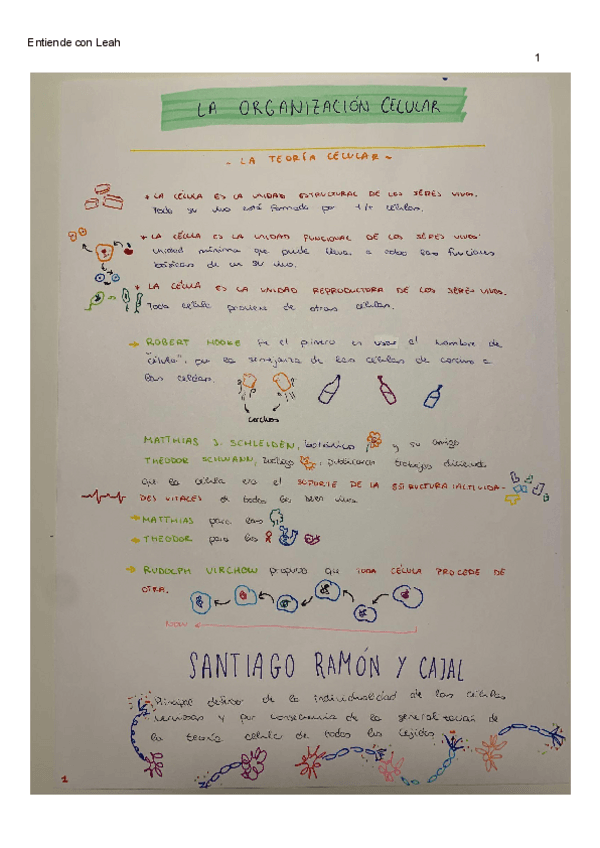 Entiende con Leah
1
LA ORGANIZACIÓN CELULAR
- LA TEORÍA CELULAR -
* LA CÉLULA ES LA UNIDAD ESTRUCTURAL DE LOS SERES VIVOS.
Todo ser vivo está formado por 1/+ células.
* LA CÉLULA ES LA UNIDAD FUNCIONAL DE LOS SERES VIVOS:
unidad mínima que puede llevar a cabo las funciones
básicas de un ser vivo.
* LA CÉLULA ES LA UNIDAD REPRODUCTORA DE LOS SERES VIVOS.
Toda célula proviene de otras células.
→ ROBERT HOOKE fue el primero en usar el nombre de
"célula", por la semejanza de las células de corcho a
las celdas.
corchos
MATTHIAS J. SCHLEIDEN, botánico, y su amigo
THEODOR SCHWANN, zoólogo, publicaron trabajos diciendo
que la célula era el SOPORTE DE LA ESTRUCTURA Y ACTIVIDA-
DES VITALES de todos los seres vivos.
→ MATTHIAS para las
→ THEODOR para los
→ RUDOLPH VIRCHOW propuso que TODA CÉLULA PROCEDE DE
OTRA.
NOW
SANTIAGO RAMÓN Y CAJAL
Principal defensor de la individualidad de las células
nerviosas y por consecuencia de la generalización de
la teoría celular de todos los tejidos.
1